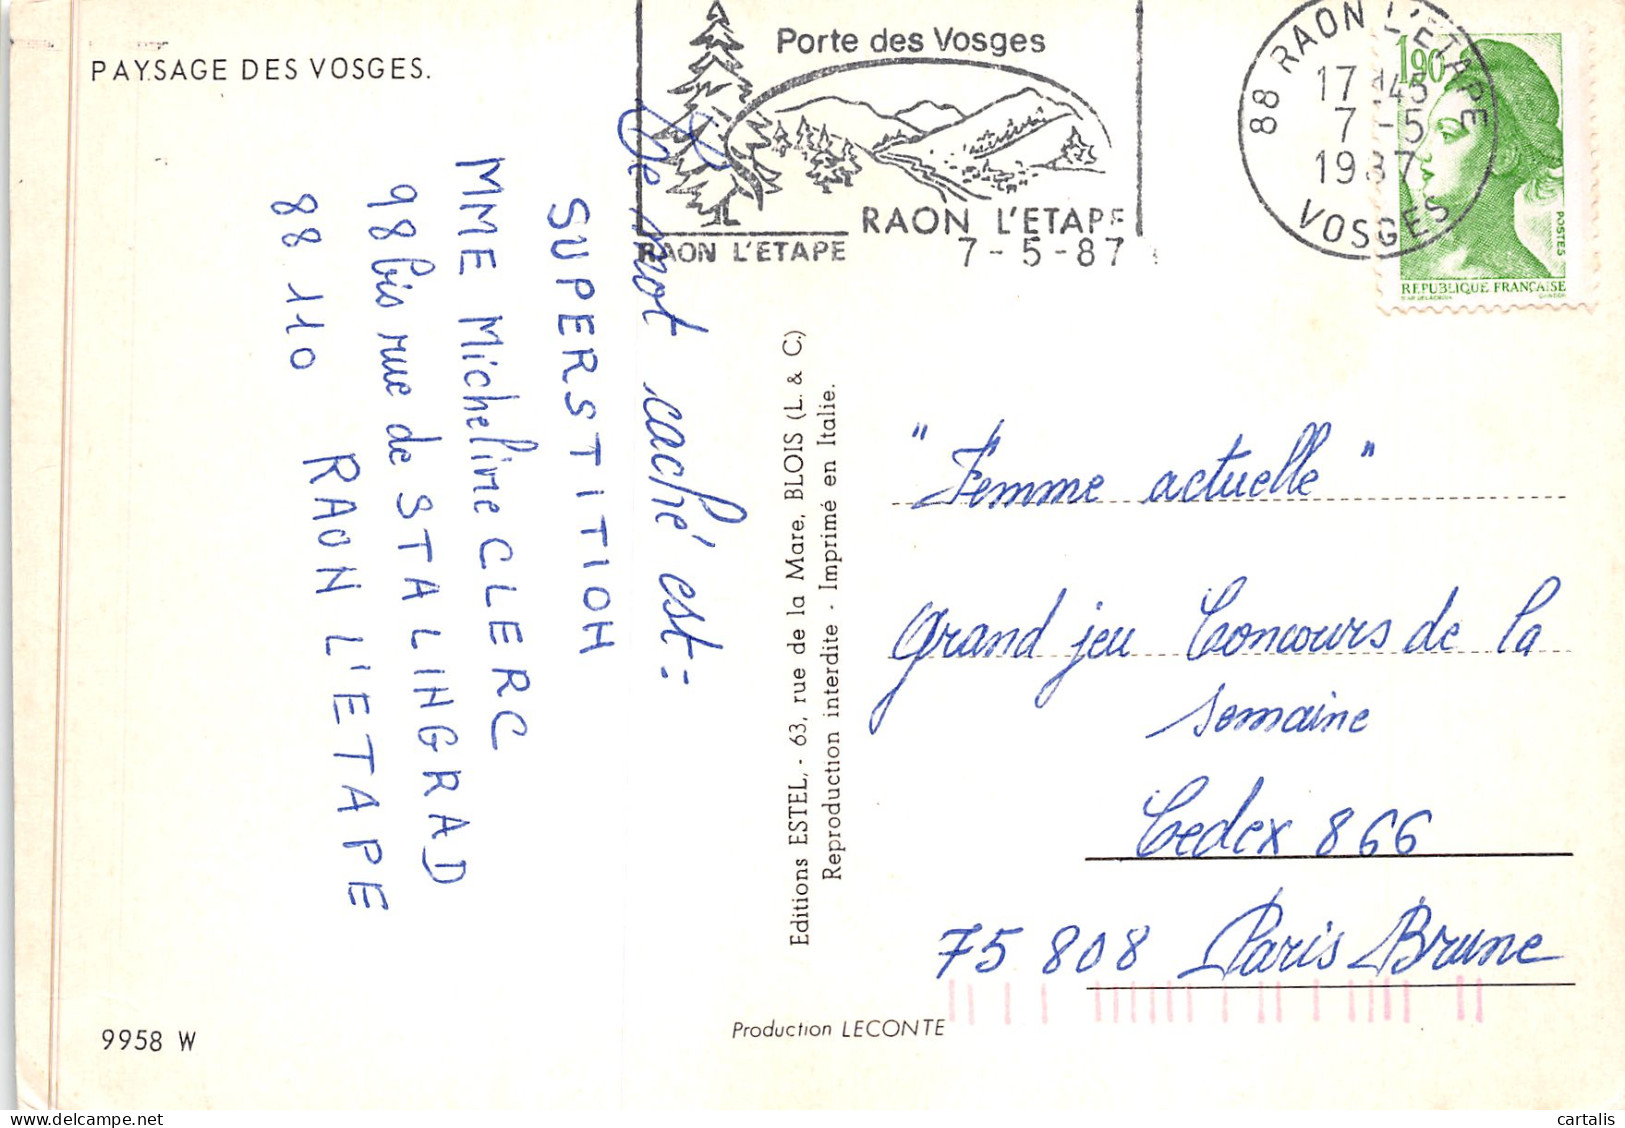 PAYSAGE DES VOSGES.
Porte des Vosges
RAON L'ETAPE
RAON L'ETAPE
7-5-87
88 RAON L'ETAPE
17H45
7-5
1987
VOSGES
1,90
POSTES
REPUBLIQUE FRANÇAISE
Le mot caché est :
SUPERSTITION
MME Micheline CLERC
98 bis rue de STALINGRAD
88 110 RAON L'ETAPE
Editions ESTEL, - 63, rue de la Mare, BLOIS (L. & C.)
Reproduction interdite - Imprimé en Italie.
"Femme actuelle"
grand jeu Concours de la
semaine
Cedex 866
75 808 Paris Brune
Production LECONTE
9958 W
cartalis